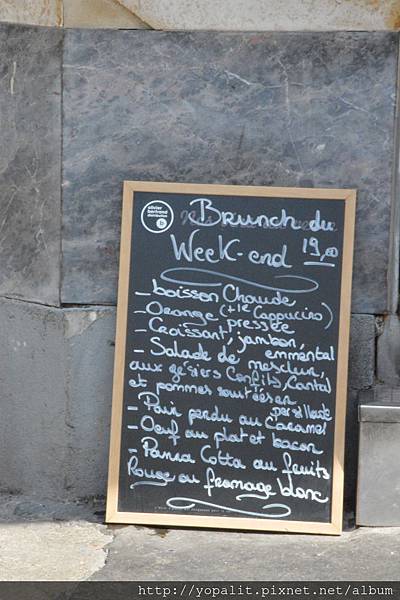 olivier bertrand
Brunch du
Week-end 19,00
- boisson Chaude
(+1€ Cappuccino)
- Orange pressée
- Croissant, jambon,
emmental
- Salade de mesclun,
aux gésiers Confits, Cantal
et pommes sautées en
persillade
- Pain perdu au Caramel
- Oeuf au plat et bacon
- Panna Cotta au fruits
Rouge ou fromage blanc
http://yopalit.pixnet.net/album